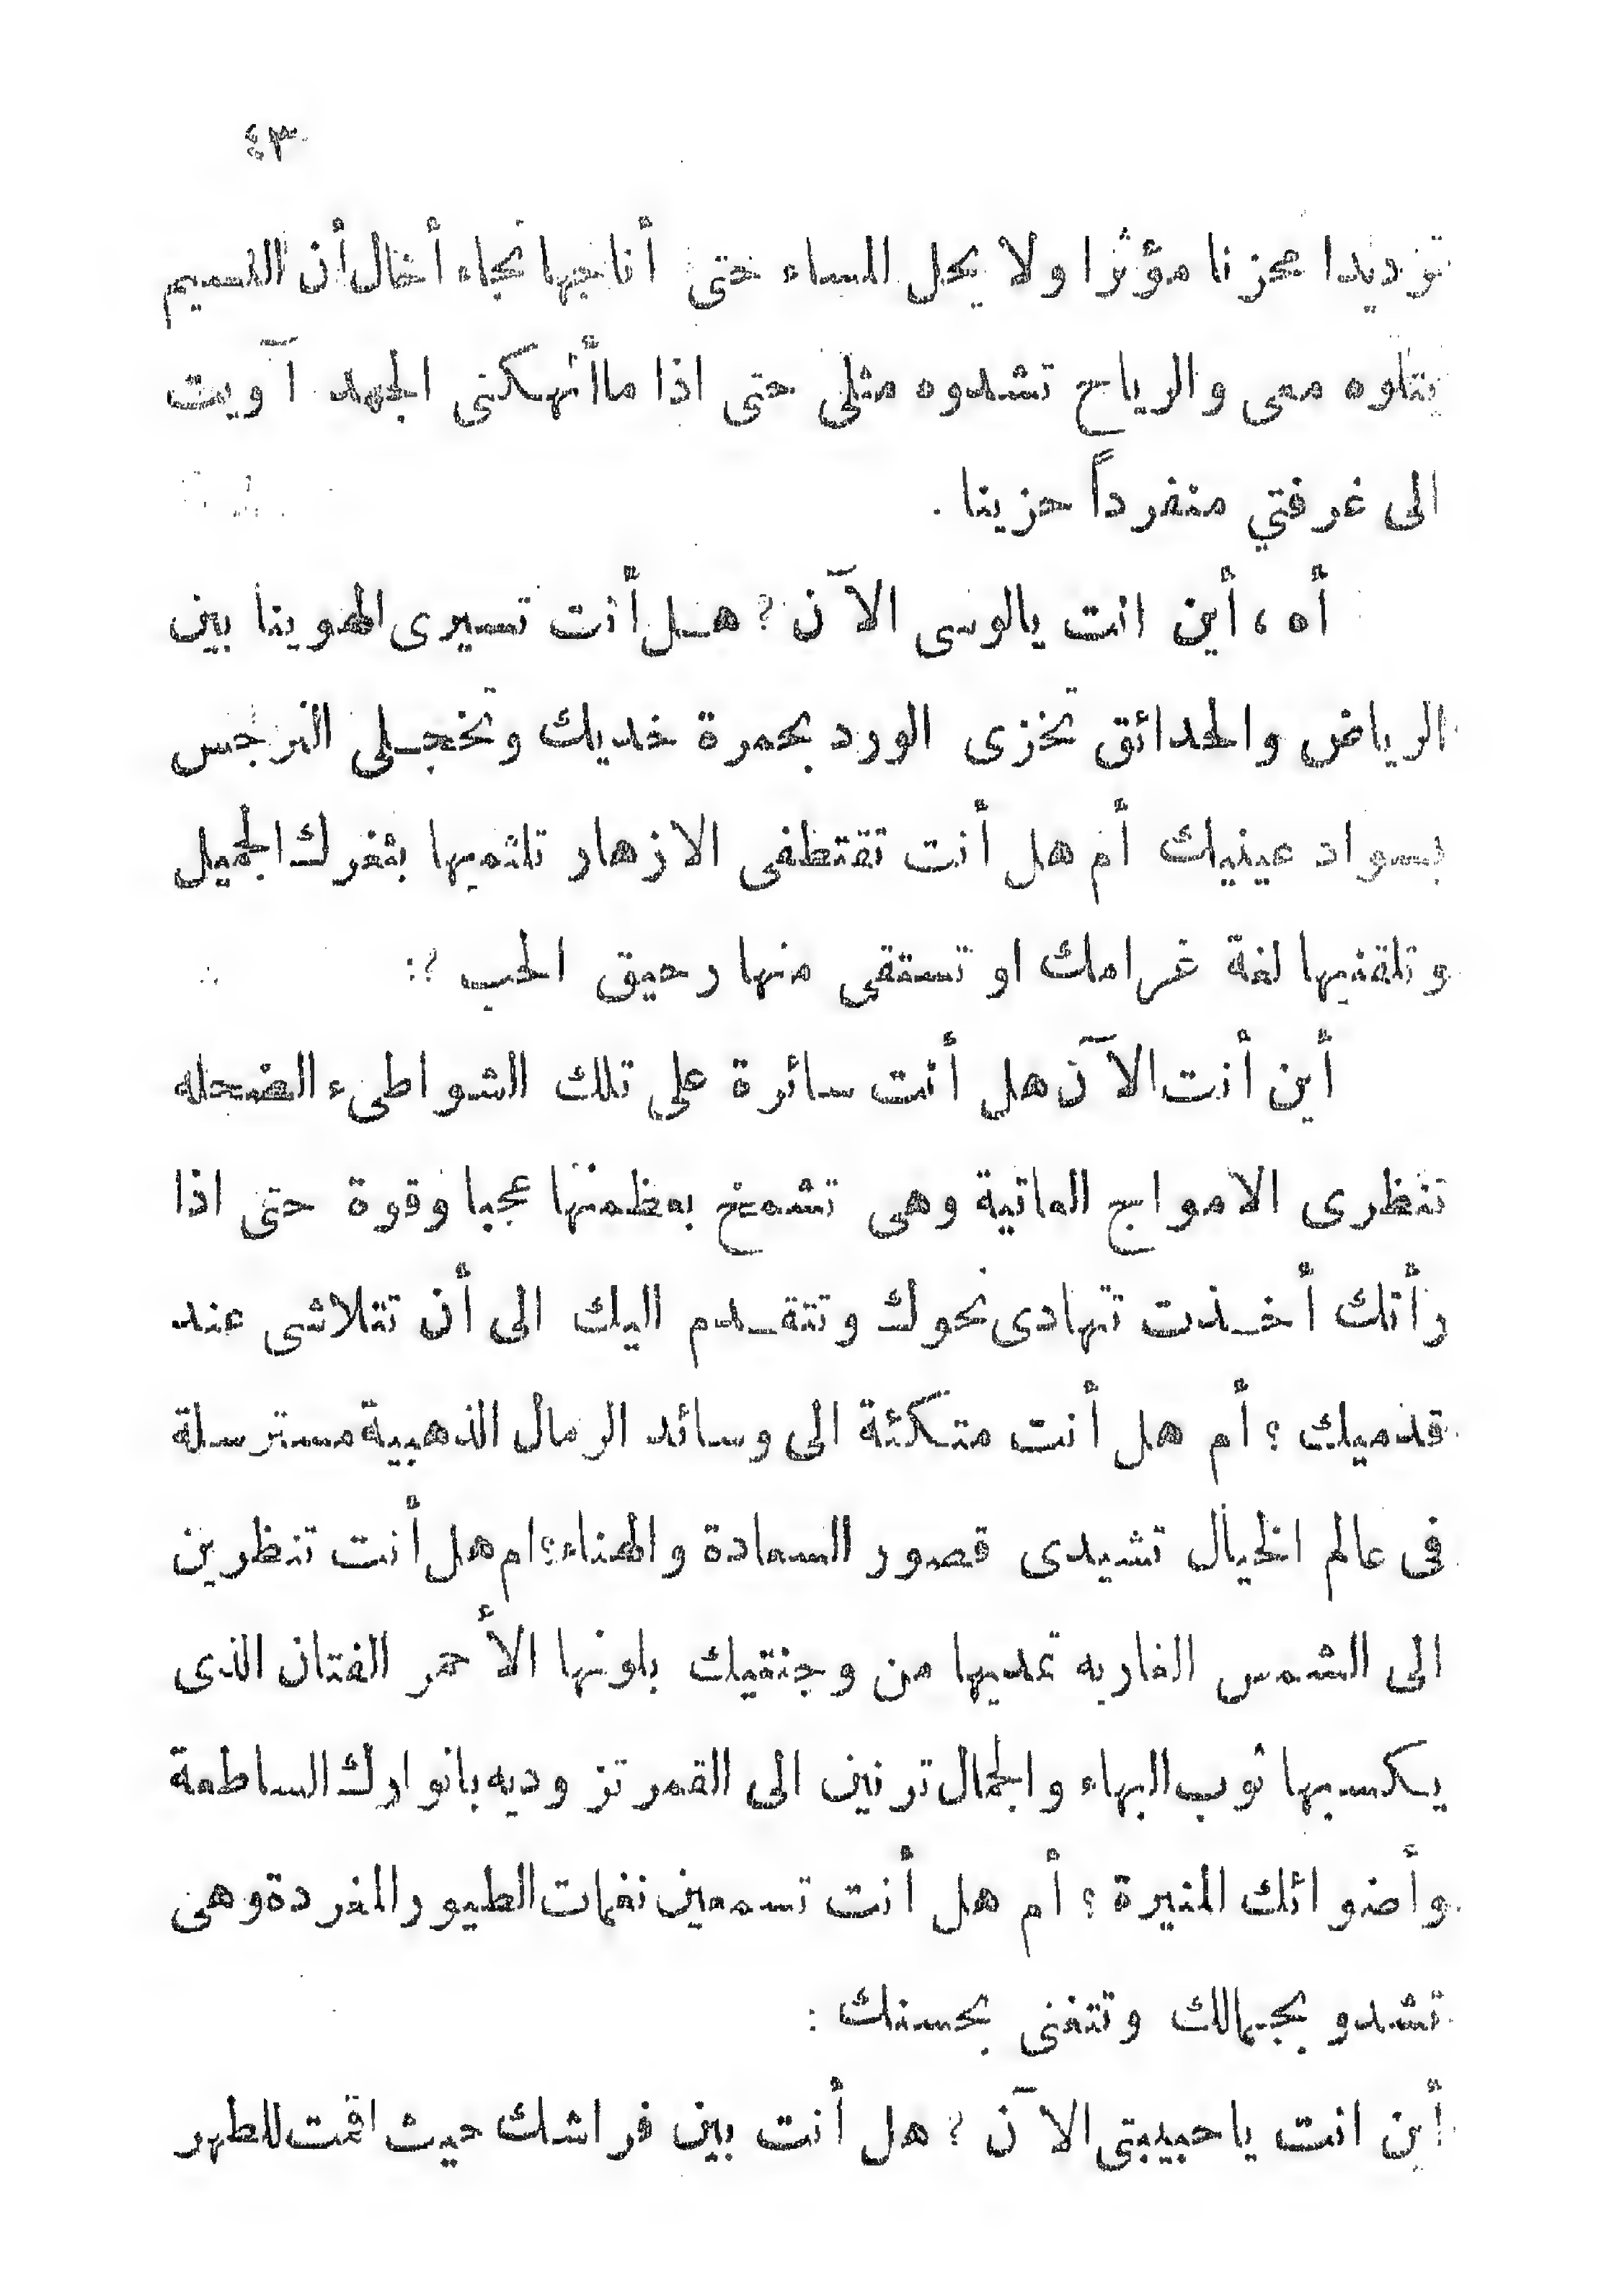 ٤٣
ترديدا محزنا مؤثرا ولا يحل المساء حتى أناجيها تجاه أخال أن النسيم
يتلوه معى والرياح تشدوه مثلى حتى اذا ما أنهكنى الجهد آويت
الى غرفتي منفرداً حزينا .
أه ، أين انت يالوسى الآن ؟ هل أنت تسيرى الهوينا بين
الرياض والحدائق تخزى الورد بحمرة خديك وتخجلى النرجس
بسواد عينيك أم هل أنت تقتطفى الازهار تلثميها بثغرك الجميل
وتلقنيها لغة غرامك او تستقى منها رحيق الحب ؟:
أين أنت الآن هل أنت سائرة على تلك الشواطىء الضحله
تنظرى الامواج العاتية وهى تشمخ بعظمتها عجبا وقوة حتى اذا
رأتك أخذت تهادى نحوك وتتقدم اليك الى أن تتلاشى عند
قدميك ؟ أم هل أنت متكئة الى وسائد الرمال الذهبية مسترسلة
فى عالم الخيال تشيدى قصور السعادة والهناء؟ ام هل أنت تنظرين
الى الشمس الغاربه تمديها من وجنتيك بلونها الأحمر الفتان الذى
يكسبها ثوب البهاء والجمال ترنين الى القمر تزوديه بانوارك الساطعة
وأضوائك المنيرة ؟ أم هل أنت تسمعين نغمات الطيور المغردة وهى
تشدو بجمالك وتتغنى بحسنك :
أين انت ياحبيبتى الآن ؟ هل أنت بين فراشك حيث اقمت للطهر